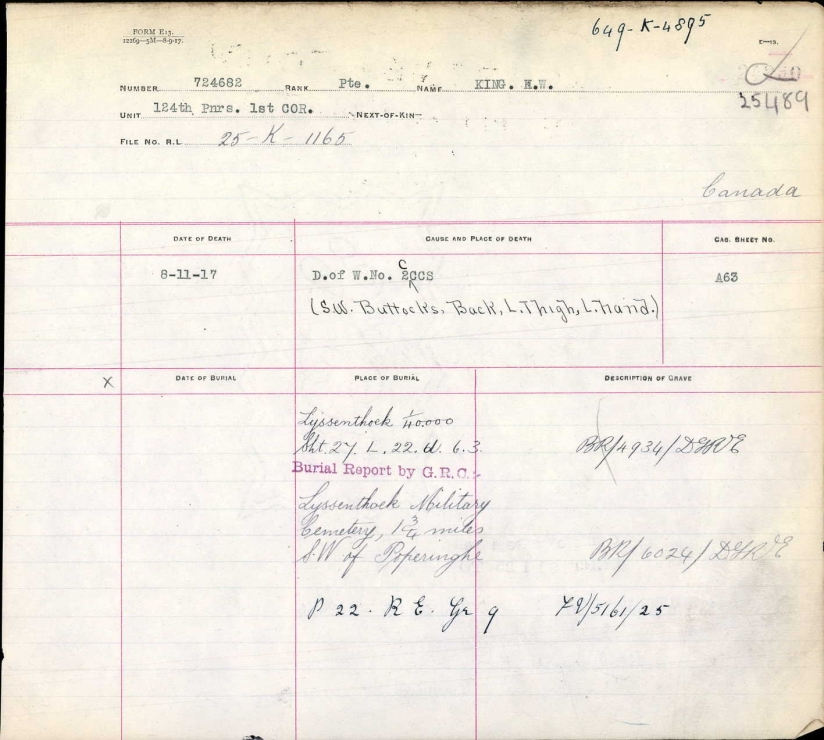 FORM E13.
12269—5M—8-9-17.
649-K-4895
E—13.
NUMBER 724682 RANK Pte. NAME KING. H.W.
25489
UNIT 124th Pnrs. 1st COR. NEXT-OF-KIN
FILE NO. R.L. 25-K-1165
Canada
DATE OF DEATH CAUSE AND PLACE OF DEATH CAS. SHEET NO.
8-11-17 D.of W.No. 2CCCS A63
(S.W. Buttocks, Back, L.Thigh, L.hand.)
X DATE OF BURIAL PLACE OF BURIAL DESCRIPTION OF GRAVE
Lyssenthoek 1/40.000
Sht. 27. L. 22. d. 6.3. BR/4934/DGRE
Burial Report by G.R.C.:-
Lyssenthoek Military
Cemetery, 1 3/4 miles
S.W of Poperinghe BR/6024/DGRE
P 22. R E. Gr 9 FV/5161/25